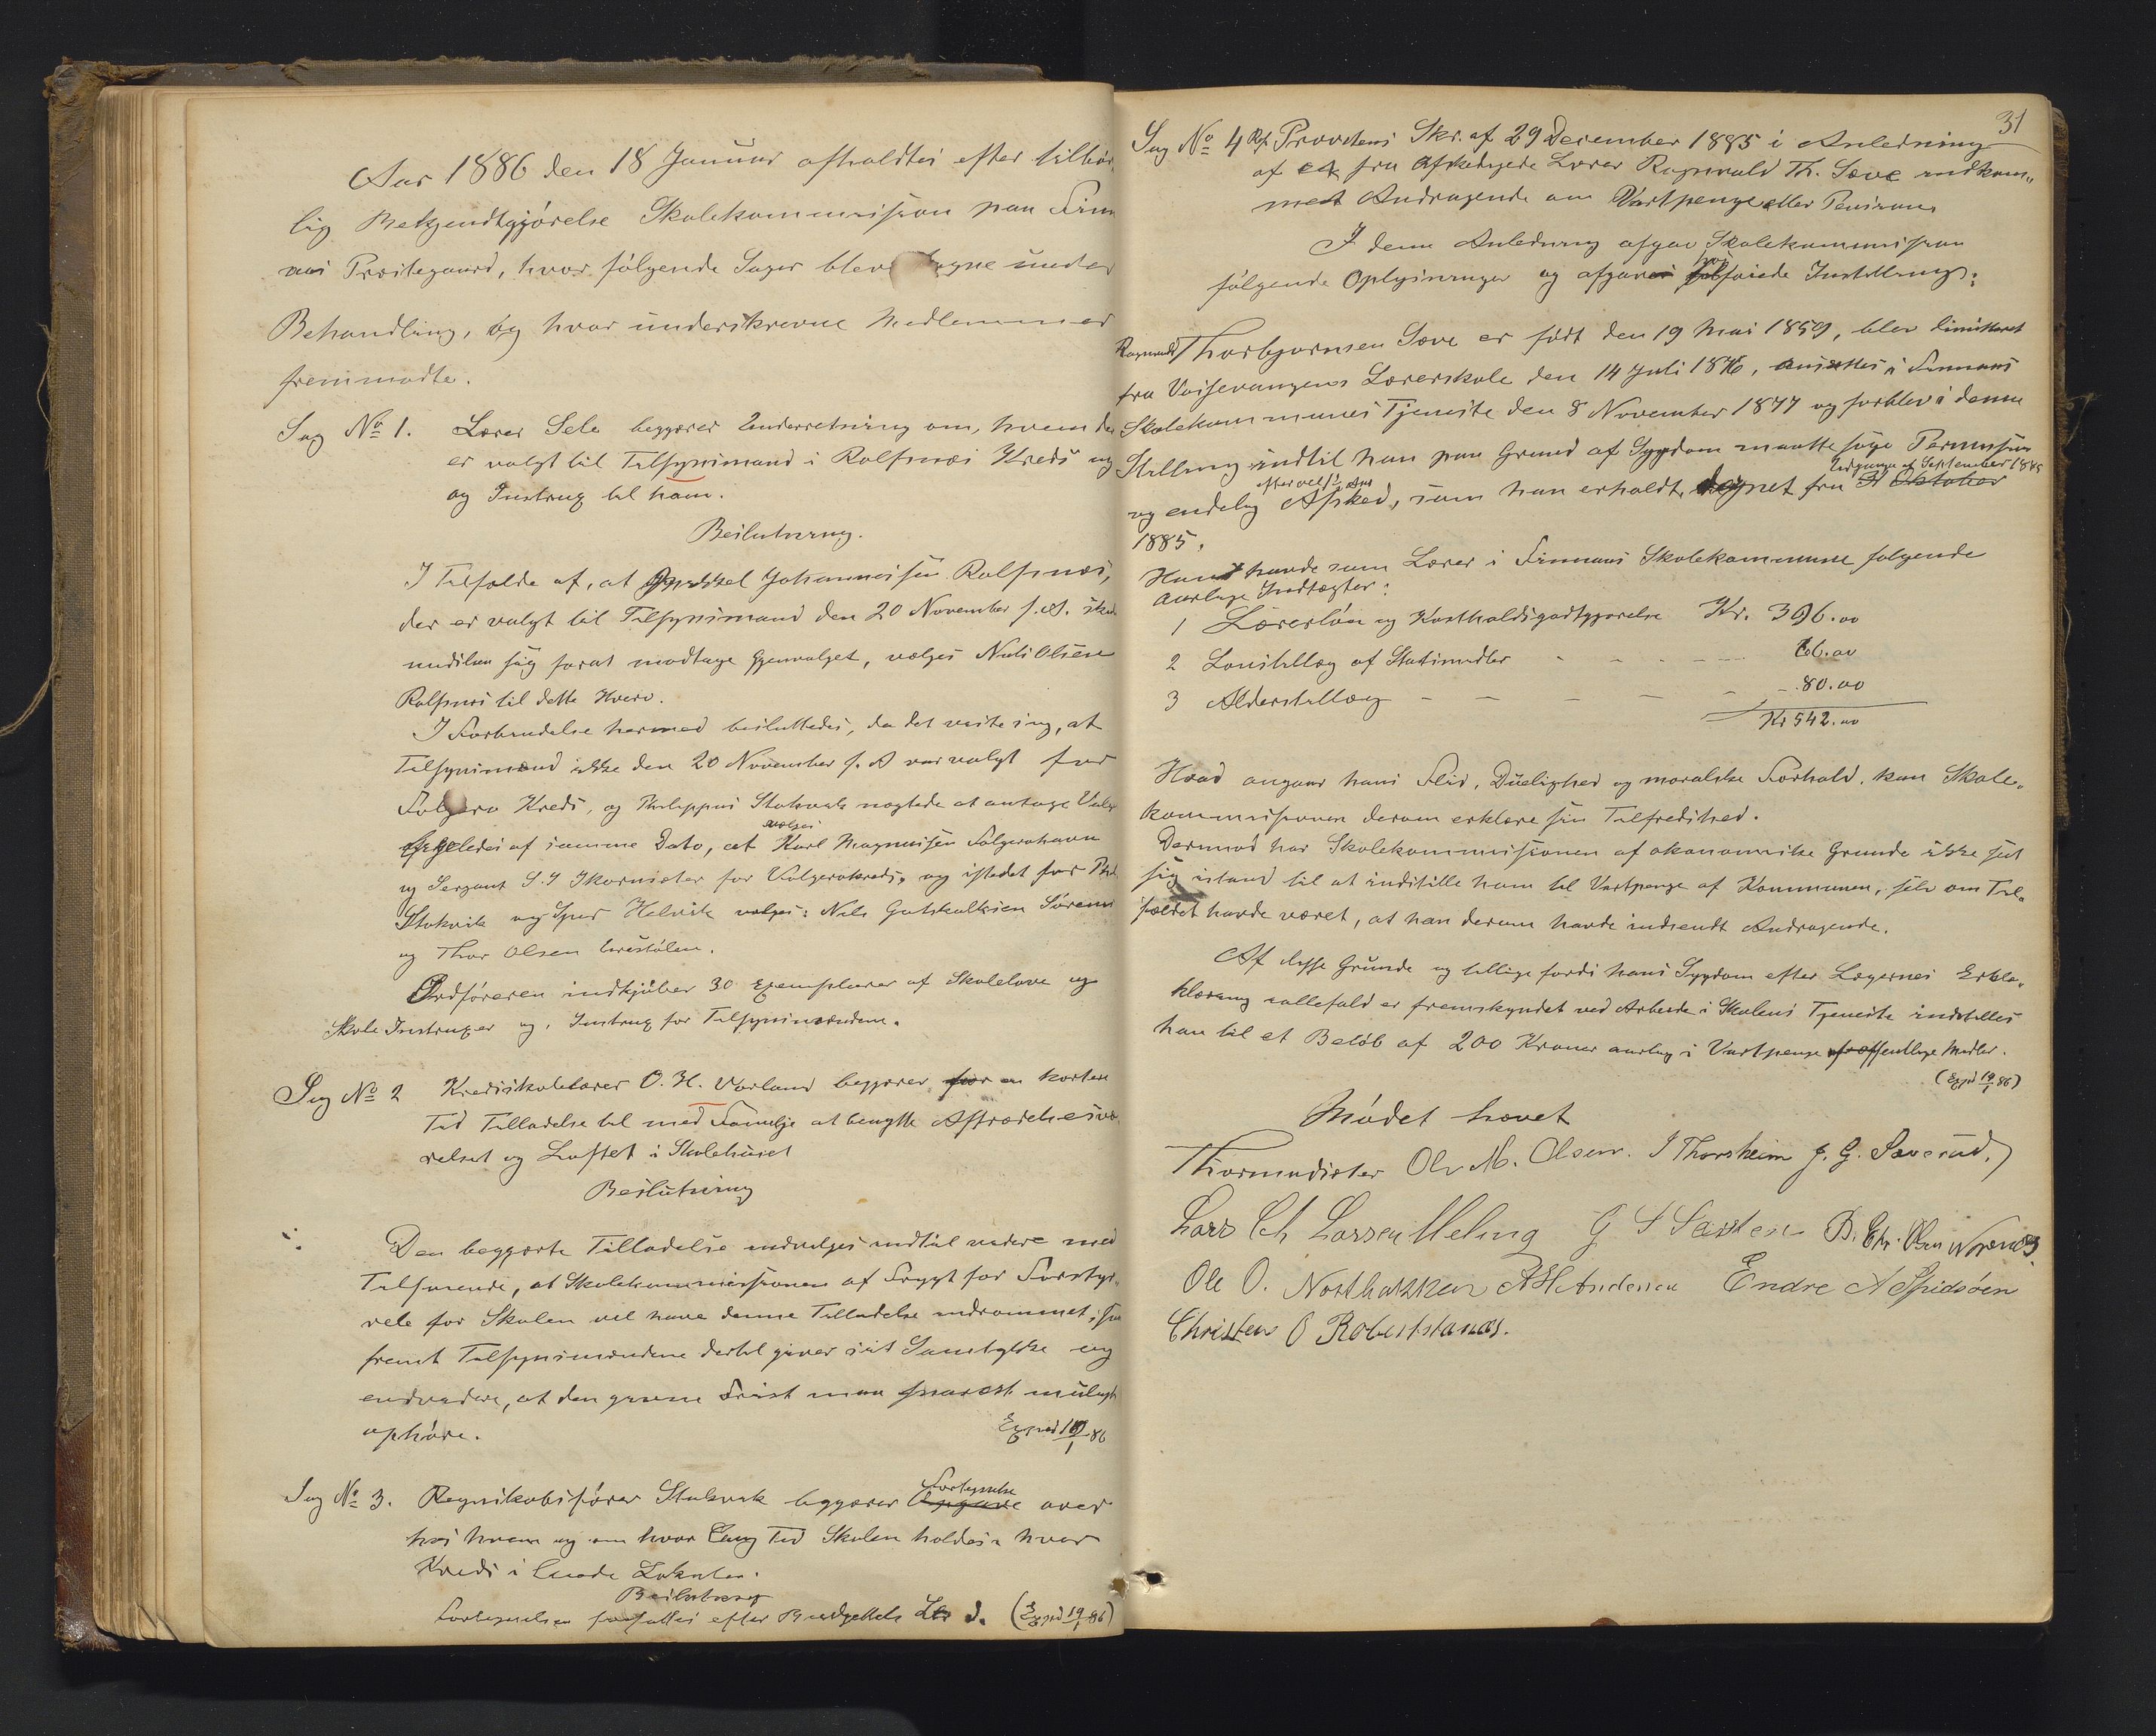 Aar 1886 den 18 Januar afholdtes efter tilbør
lig Bekjendtgjørelse Skolekommission paa Finn
aas Præstegaard, hvor følgende Sager bleve tagne under
Behandling, og hvor underskrevne Medlemmer
fremmødte.
Sag No 1. Lærer Sele begjærer Underretning om, hvem der
er valgt til Tilsynsmand i Rolfsnæs Kreds og
og Instrux til ham.
Beslutning.
I Tilfælde af, at Johannessen Rolfsnæs,
der er valgt til Tilsynsmand den 20 November f.A. skulde
undslaa sig forat modtage Gjenvalget, vælges Nils Olsen
Rolfsnæs til dette Hverv.
I Forbindelse hermed besluttedes, da det viste sig, at
Tilsynsmand ikke den 20 November f. A var valgt for
Folgerø Kreds, og Philippus Stokvik nægtede at antage Valg
ligeledes af samme Dato, at vælges Karl Magnussen Folgerøhavn
og Sergant S. I Skornæster for Valgerøkreds, og istedet for Phil.
Stokvik og Sjur Helvik vælges: Nils Gutskalksen Sørenes
og Thor Olsen
Ordføreren indkjøber 30 Exemplarer af Skolelove og
Skole Instruxer og, Instrux for Tilsynsmændene.
Sag No 2 Kredsskolelærer O. H. Vorland begjærer for en kortere
Tid Tilladelse til med Familje at benytte Aftrædelsesvæ
relset og Loftet i Skolehuset
Beslutning
Den begjærte Tilladelse indvilges indtil videre med
Tilføiende, at Skolekommissionen af Frygt for Forstyr,
relse for Skolen vil have denne Tilladelse indrømmet, saa
fremt Tilsynsmændene dertil giver sit Samtykke og
endvidere, at den givne Frist maa snarest muligt
ophøre.
Exped 19/1 86
Sag No 3. Regnskabsfører Stokvik begjærer Opgave Fortegnelse over
hos hvem og om hvor lang Tid Skolen holdes i hver
Kreds i leiede Lokaler.
Beslutning
Fortegnelsen forfattes efter Budgettets Litr d. (Exped 19/1 86)
31
Sag No 4 Provstens Skr. af 29 December 1885 i Anledning
af et fra afskedigede Lærer Ragnvald Th. Sæve indkom„
met Andragende om Vartpenge eller Pension
I den Anledning afgav Skolekommission
følgende Oplysninger og afgaves hosføiede Indstilling:
Ragnvald Thorbjørnsen Sæve er født den 19 Mai 1859, blev dimitteret
fra Voissevangens Lærerskole den 14 Juli 1876, ansattes i Finnaas
Skolekommunes Tjeneste den 8 November 1877 og forblev i denne
Stilling indtil han paa Grund af Sygdom maatte søge Permission
og endelig efter vel 1/2 Aar Afsked, som han erholdt, regnet fra Udgangen af September 1885 Oktober
1885.
Hans havde som Lærer i Finnaas Skolekommune følgende
aarlige Indtægter:
1 Lærerløn og Kostholdsgodtgjørelse Kr. 396.00
2 Lønstillæg af Statsmidler - - - - 66.00
3 Alderstillæg - - - - - - 80.00
Kr 542.00
Hvad angaar hans Flid, Duelighed og moralske Forhold, kan Skole„
kommissionen derom erklære sin Tilfredshed.
Dermod har Skolekommissionen af økonomiske Grunde ikke set
sig istand til at indstille ham til Vartpenge af Kommunen, selv om Til„
fældet havde været, at han derom havde indsendt Andragende.
Af disse Grunde og tillige fordi hans Sygdom efter Lægernes Erklæ„
klæring iallefald er fremskyndet ved Arbeide i Skolens Tjeneste indstilles
han til et Beløb af 200 Kroner aarlig i Vartpenge af offentlige Midler.
(Exp 19/1 86)
Mødet hævet
Thormodsæter Ole M. Olsen. I Thorsheim J. G. Sæverud.
Lars Ch Larsen Meling G S Særsten B. Chr. Olsen
Ole O. Northakken A H Andersen Endre N Spidsøen
Christen O Robertstanæs.